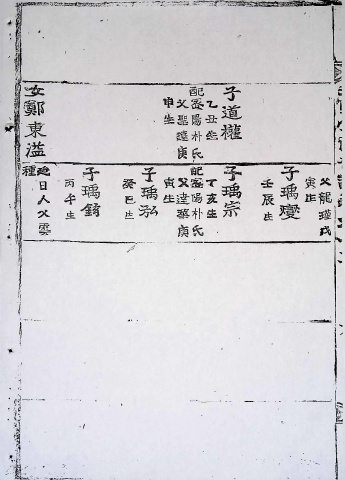 子道權
乙丑生
配密陽朴氏
父聖達庚
申生
女鄭東溢
迎日人父雲
種
戊
寅生
子瑀燮
壬辰生
子瑀宗
丁亥生
配密陽朴氏
父達華庚
寅生
子瑀泓
癸巳生
子瑀錡
丙午生